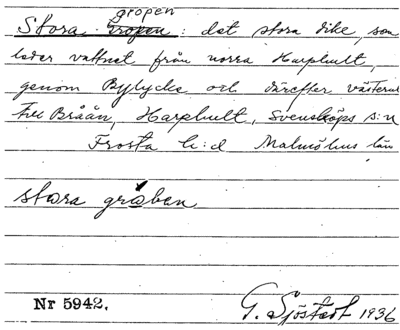 gropen
Stora gropen: det stora dike, som
leder vattnet från norra Harphult,
genom Bylycke och därefter västerut
till Bråån, Harphult, Svensköps s:n
Frosta h:d Malmöhus län
stora gråben
Nr 5942.
G. Sjöstedt 1936